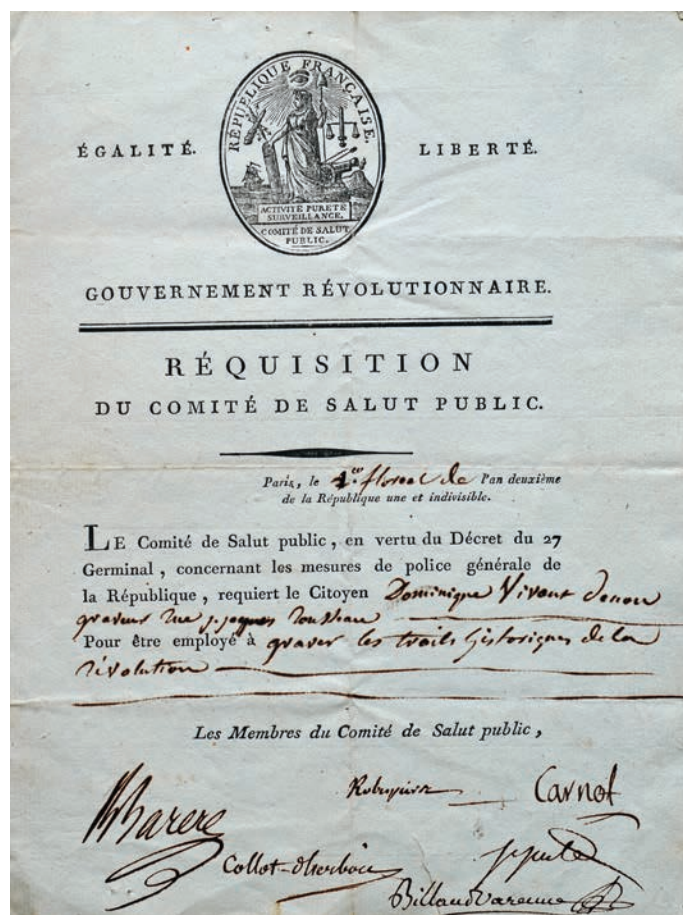 RÉPUBLIQUE FRANÇAISE.
ÉGALITÉ. LIBERTÉ.
ACTIVITÉ PURETÉ
SURVEILLANCE.
COMITÉ DE SALUT
PUBLIC.
GOUVERNEMENT RÉVOLUTIONNAIRE.
RÉQUISITION
DU COMITÉ DE SALUT PUBLIC.
Paris, le 1.er floreal de l'an deuxième
de la République une et indivisible.
LE Comité de Salut public, en vertu du Décret du 27
Germinal, concernant les mesures de police générale de
la République, requiert le Citoyen Dominique Vivant denon
graveur rue j. jacques rousseau
Pour être employé à graver les traits historiques de la
révolution
Les Membres du Comité de Salut public,
Robespierre Carnot
BBarere
Collot-d'herbois
Billaud Varenne